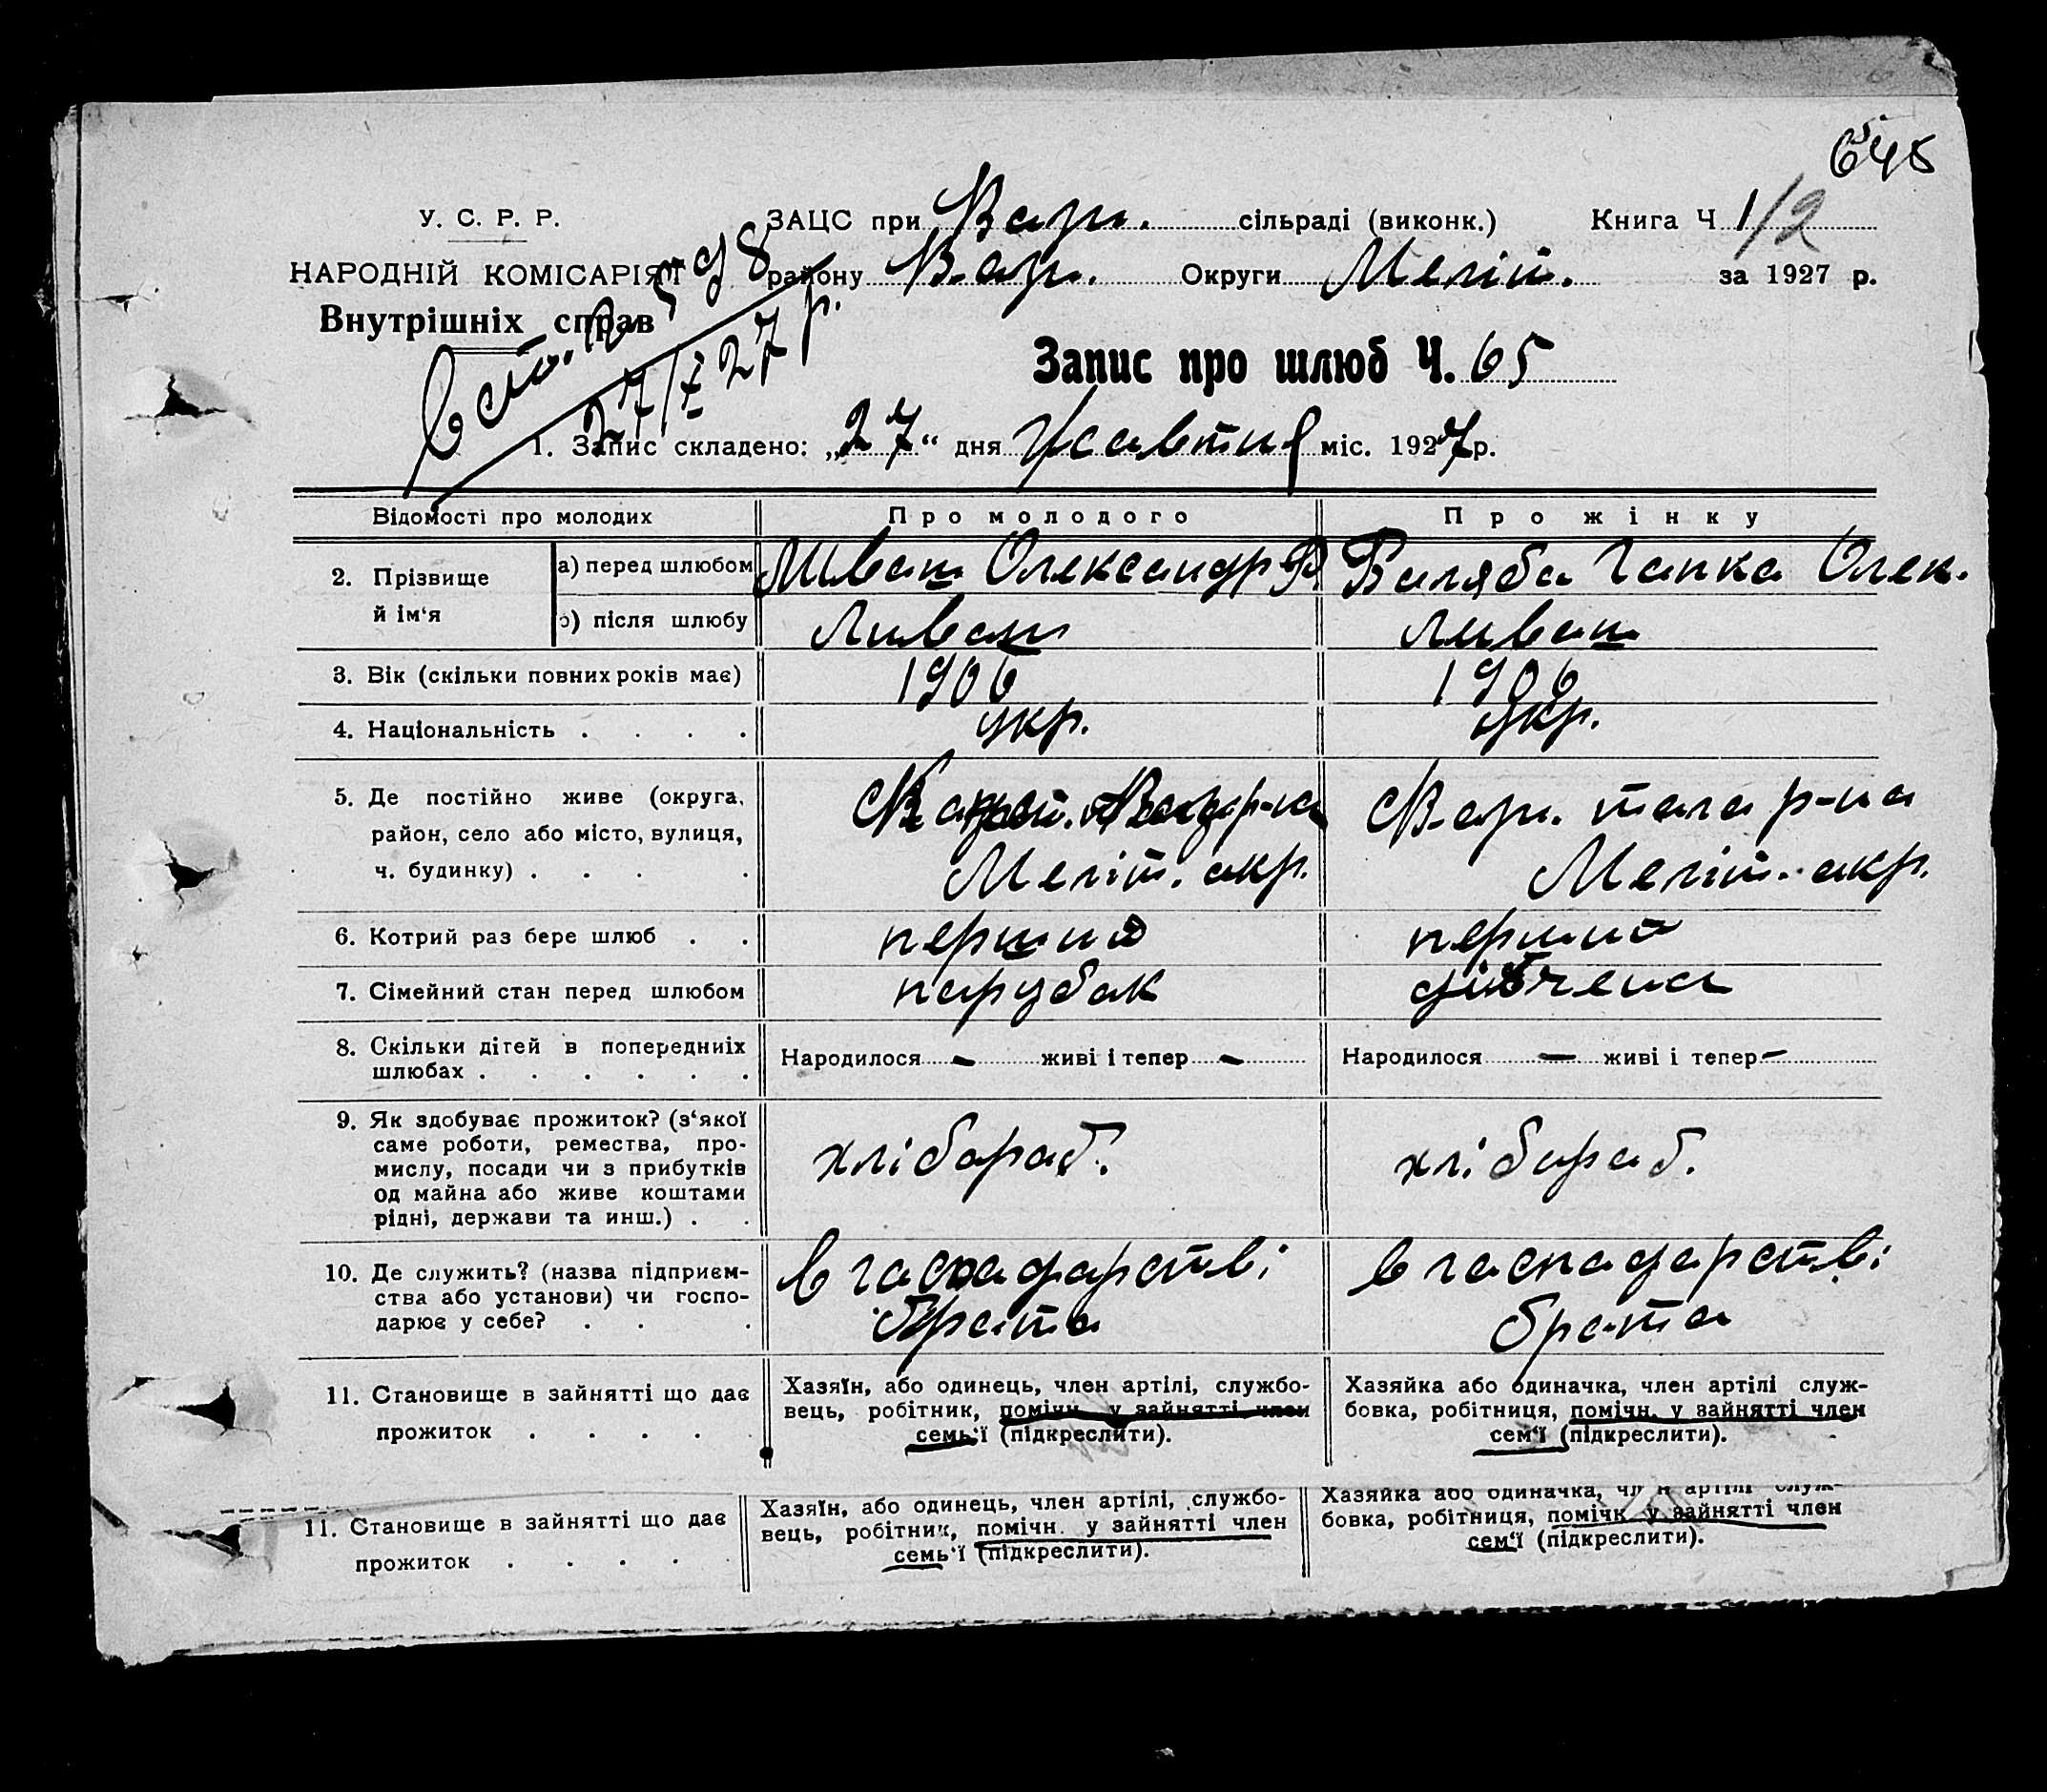 648
У. С. Р. Р.
ЗАЦС при Вар. сільраді (виконк.) Книга Ч 1/2
НАРОДНІЙ КОМІСАРІЯТ
району Вар. Округи Меліт. за 1927 р.
Внутрішніх справ
598
27/X 27 р.
Запис про шлюб Ч. 65
1. Запис складено: „27“ дня Жавтня міс. 1927 р.
Відомості про молодих Про молодого Про жінку
2. Прізвище й ім‘я
а) перед шлюбом Ливаш Олександр Ф. Баляба Гапка Олек.
б) після шлюбу Ливаш Ливаш
3. Вік (скільки повних років має) 1906 1906
4. Національність . . . . укр. укр.
5. Де постійно живе (округа,
район, село або місто, вулиця,
ч. будинку) . . . .
р-на С Вар. тага р-на
Меліт. акр. Меліт. акр.
6. Котрий раз бере шлюб . . перший перший
7. Сімейний стан перед шлюбом парубак дівчена
8. Скільки дітей в попередниіх
шлюбах . . . . . .
Народилося - живі і тепер - Народилося - живі і тепер -
9. Як здобуває прожиток? (з‘якої
саме роботи, ремества, про-
мислу, посади чи з прибутків
од майна або живе коштами
рідні, держави та инш.) . .
хлібараб. хлібараб.
10. Де служить? (назва підприєм-
ства або установи) чи госпо-
дарює у себе? . . .
в гаспадарстві в гаспадарстві
брата брата
11. Становище в зайнятті що дає
прожиток . . . . .
Хазяїн, або одинець, член артілі, службо-
вець, робітник, помічн. у зайнятті член
семь‘ї (підкреслити).
Хазяйка або одиначка, член артілі служ-
бовка, робітниця, помічн. у зайнятті член
сем‘ї (підкреслити).
11. Становище в зайнятті що дає
прожиток . . . .
Хазяїн, або одинець, член артілі, службо-
вець, робітник, помічн. у зайнятті член
семь‘ї (підкреслити).
Хазяйка або одиначка, член артілі служ-
бовка, робітниця, помічк у зайнятті член
сем‘ї (підкреслити).